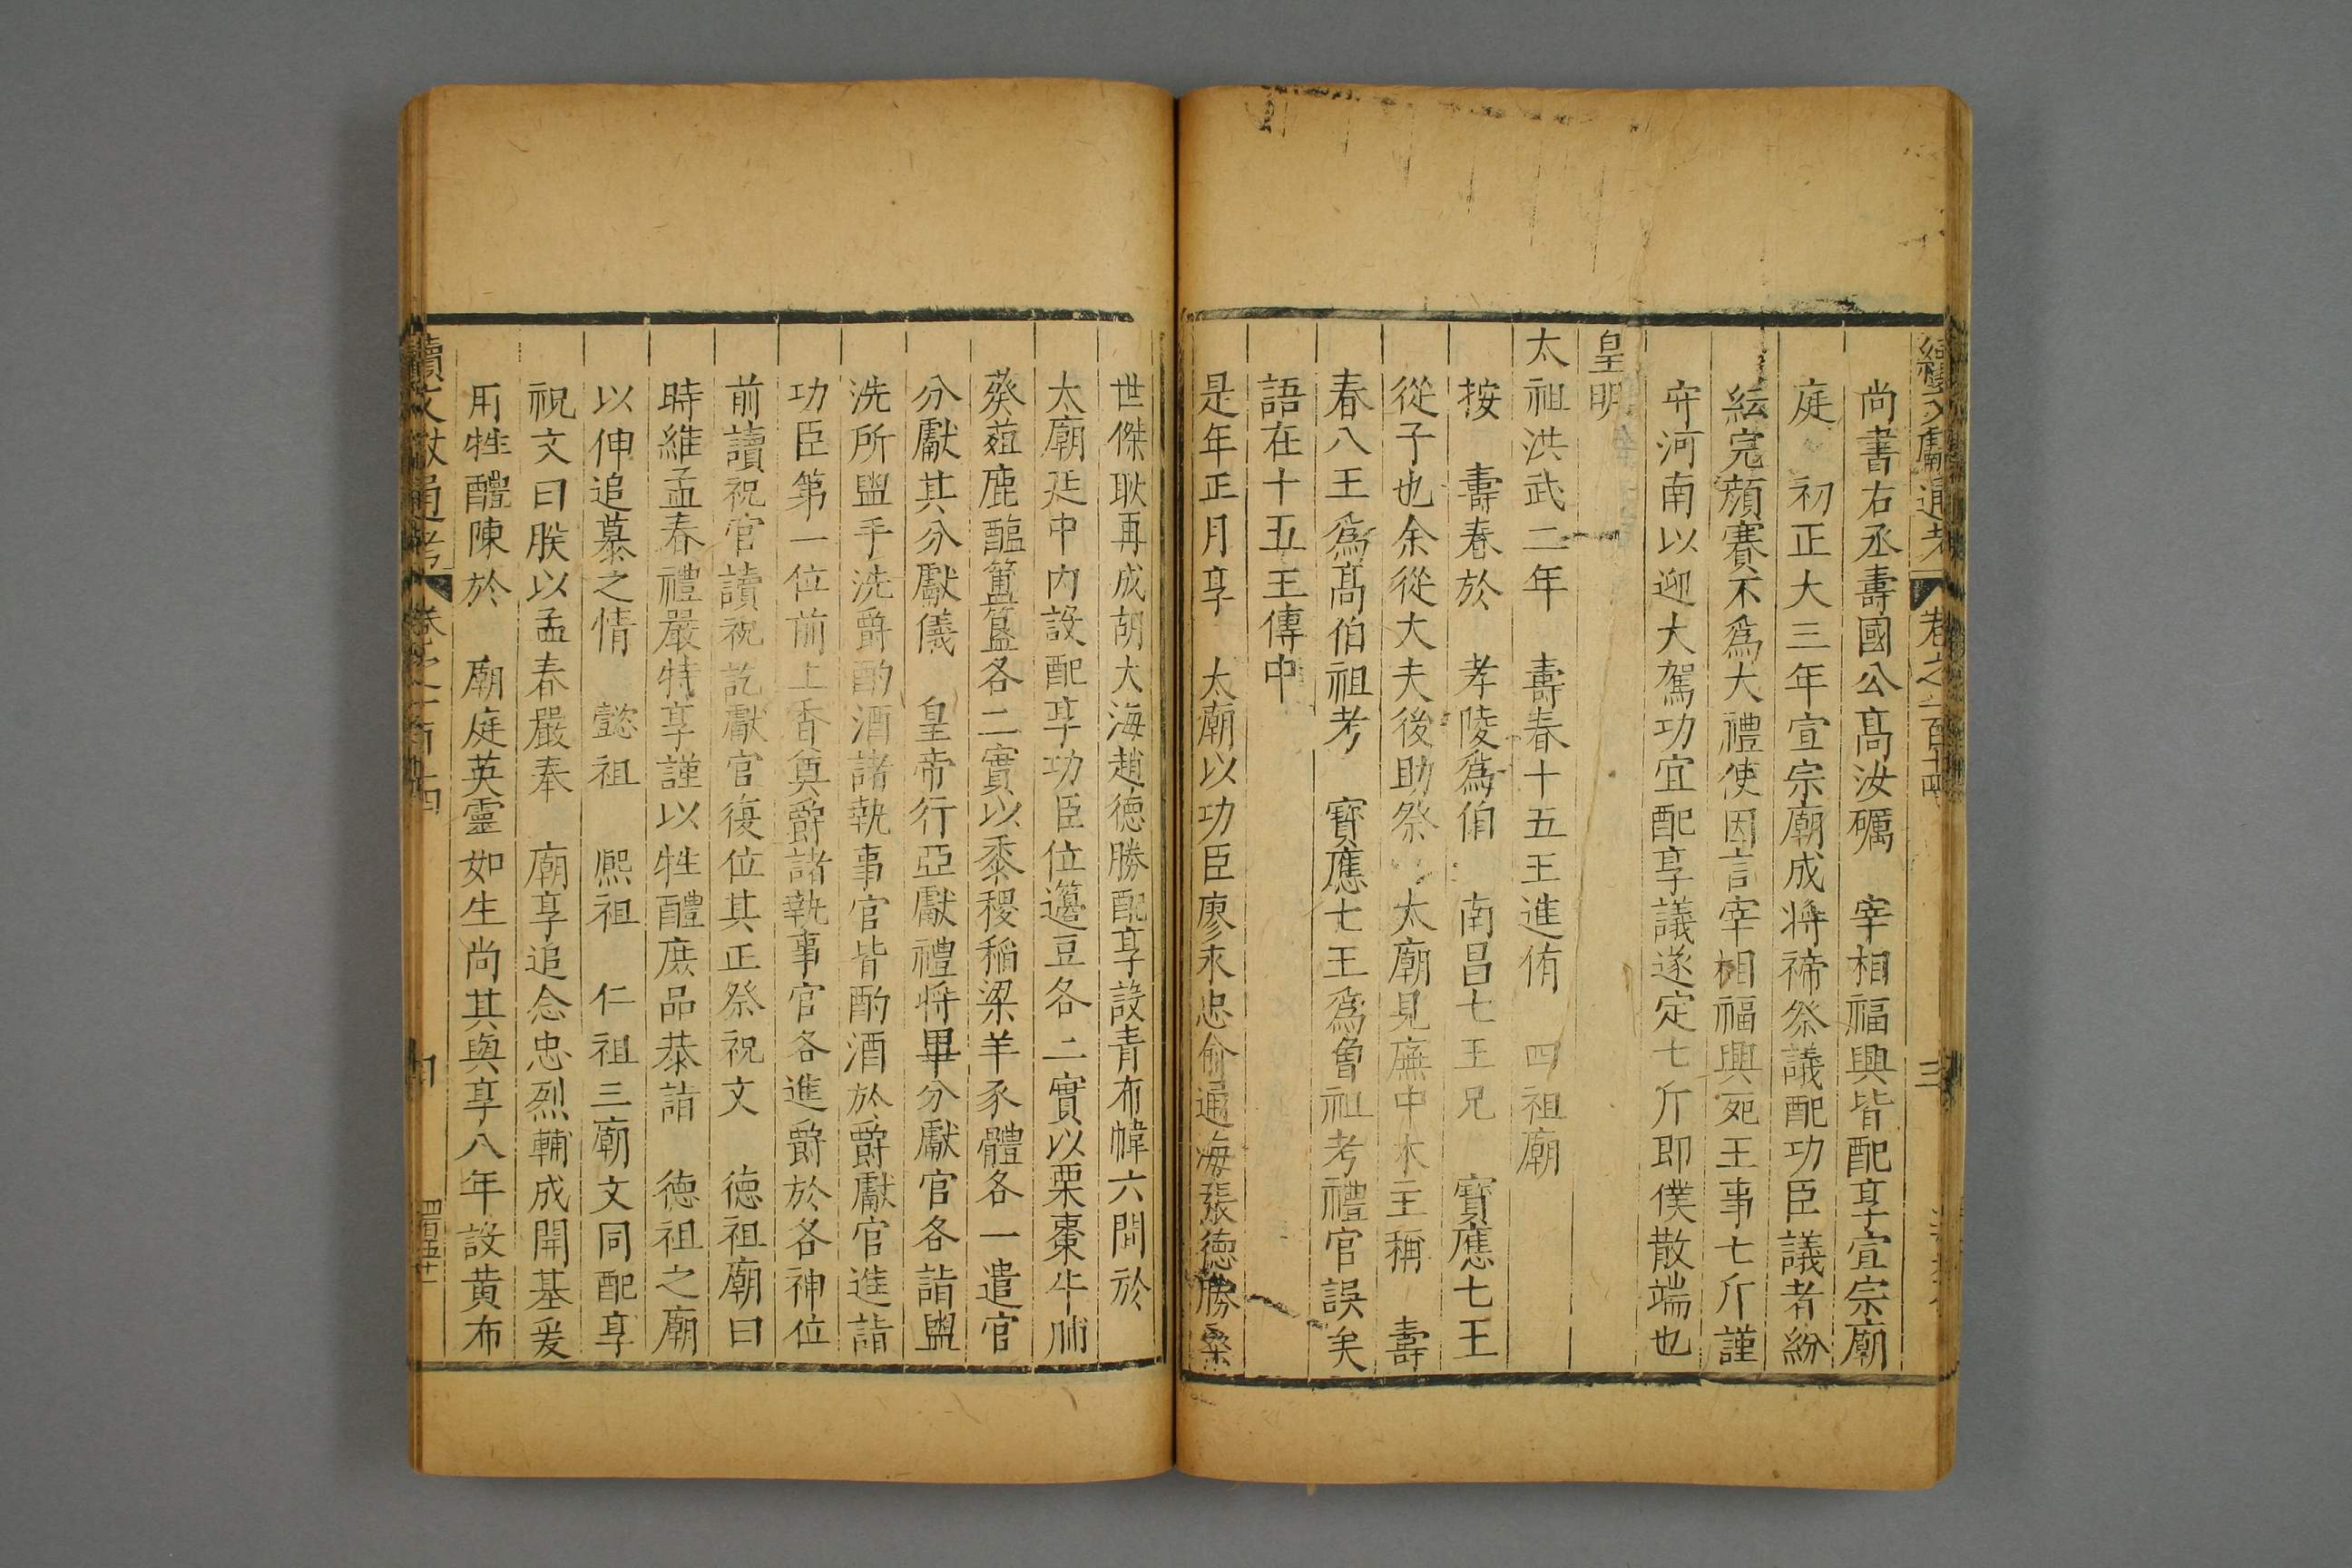 續文獻通考 卷之一百十四 三
尚書右丞壽國公高汝礪 宰相福興皆配享宣宗廟
庭 初正大三年宣宗廟成將禘祭議配功臣議者紛
紜完顏賽不爲大禮使因言宰相福興死王事七斤謹
守河南以迎大駕功宜配享議遂定七斤即僕散端也
皇明
太祖洪武二年 壽春十五王進侑 四祖廟
按 壽春於 孝陵爲伯 南昌七王兄 寶應七王
從子也余從大夫後助祭 太廟見廡中木主稱 壽
春八王爲高伯祖考 寶應七王爲曾祖考禮官誤矣
語在十五王傳中
是年正月享 太廟以功臣廖永忠俞通海張德勝桑
世傑耿再成胡大海趙德勝配享設青布幃六間於
太廟廷中內設配享功臣位籩豆各二實以栗棗牛脯
葵菹鹿醢簠簋各二實以黍稷稻梁羊豕體各一遣官
分獻其分獻儀 皇帝行亞獻禮將畢分獻官各詣盥
洗所盥手洗爵酌酒諸執事官皆酌酒於爵獻官進詣
功臣第一位前上香奠爵諸執事官各進爵於各神位
前讀祝官讀祝訖獻官復位其正祭祝文 德祖廟曰
時維孟春禮嚴特享謹以牲醴庶品恭詣 德祖之廟
以伸追慕之情 懿祖 熈祖 仁祖三廟文同配享
祝文曰朕以孟春嚴奉 廟享追念忠烈輔成開基爰
用牲醴陳於 廟庭英靈如生尚其與享八年設黃布
續文獻通考 卷之一百十四